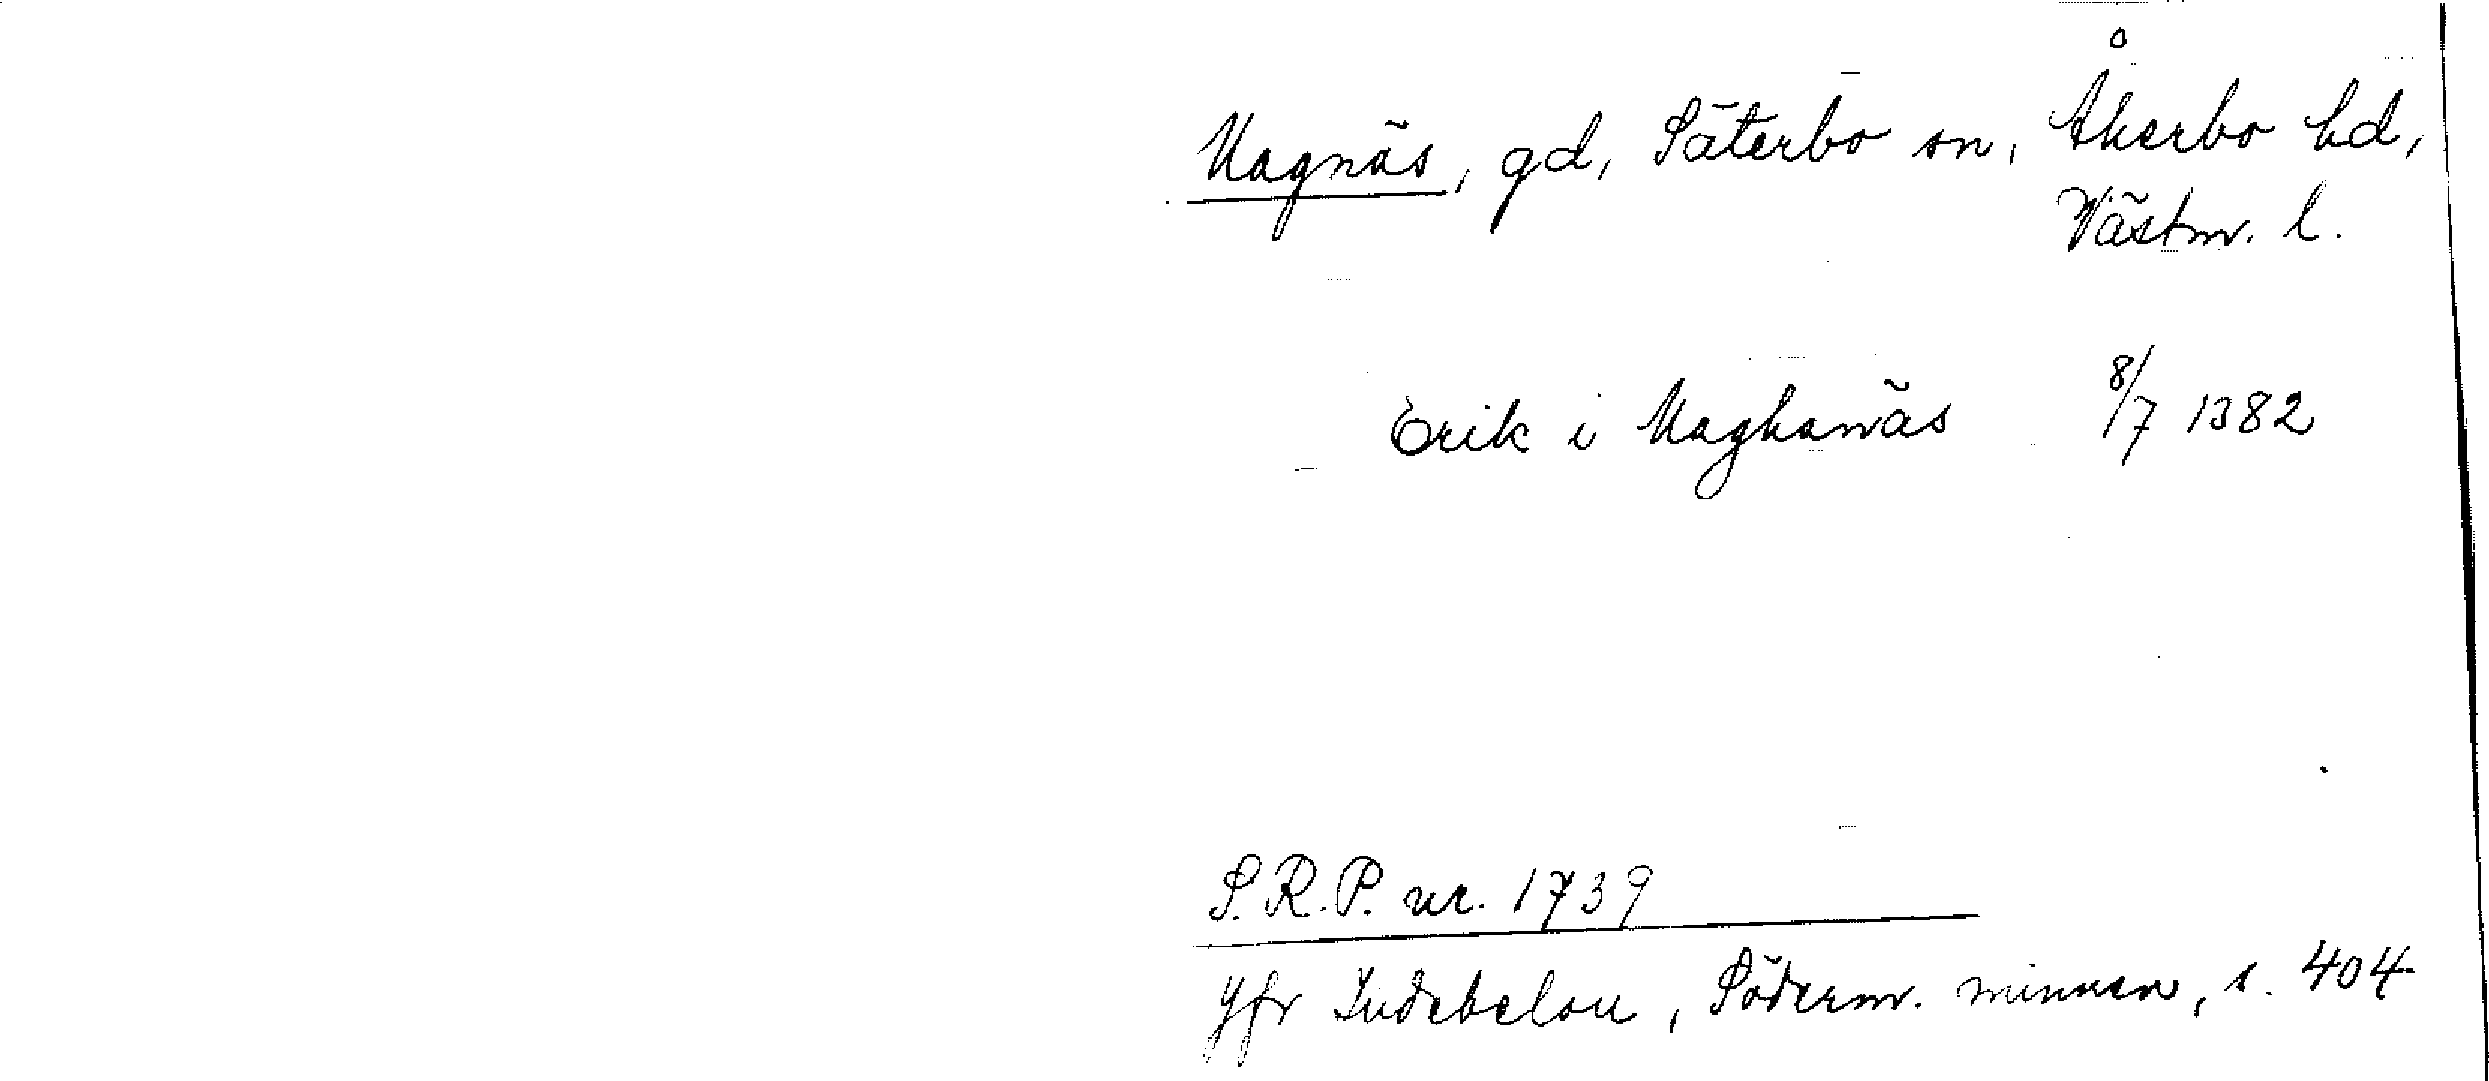 Magnäs, gd, Säterbo sn, Åkerbo hd,
Västm. l.
Erik i Maghanäs 8/7 1382
S.R.P. nr. 1739
Jfr Indebetou, Söderm. minnen, s. 404